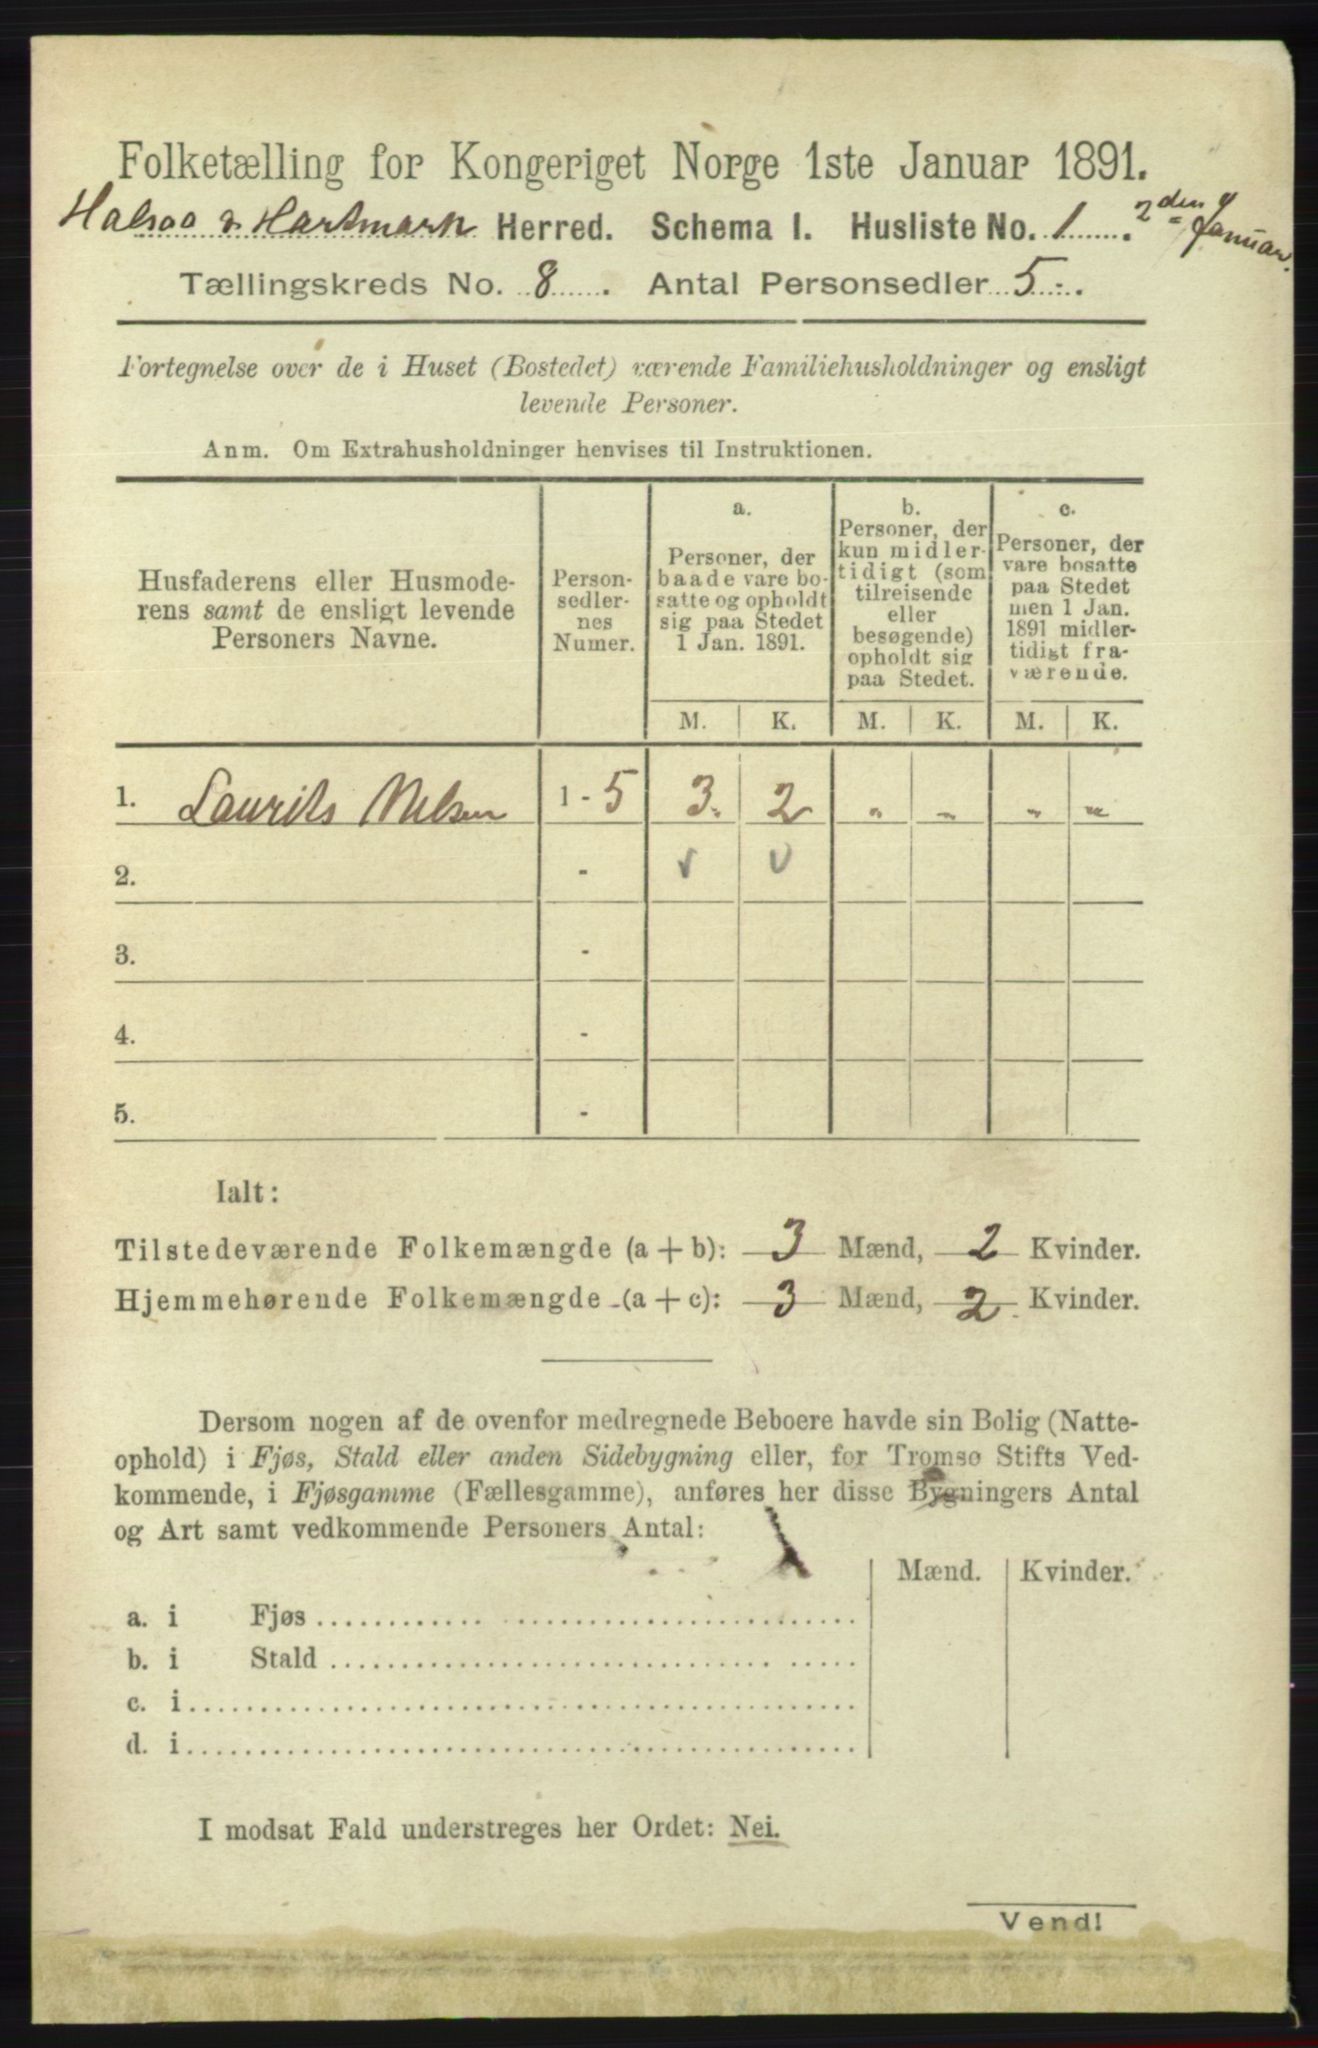 Folketælling for Kongeriget Norge 1ste Januar 1891.
Halsaa & Hartmark Herred. Schema I. Husliste No. 1. 2den Januar.
Tællingskreds No. 8. Antal Personsedler 5.
Fortegnelse over de i Huset (Bostedet) værende Familiehusholdninger og ensligt
levende Personer.
Anm. Om Extrahusholdninger henvises til Instruktionen.
Husfaderens eller Husmode-
rens samt de ensligt levende
Personers Navne.
Person-
sedler-
nes
Numer.
a.
Personer, der
baade vare bo-
satte og opholdt
sig paa Stedet
1 Jan. 1891.
b.
Personer, der
kun midler-
tidigt (som
tilreisende
eller
besøgende)
opholdt sig
paa Stedet.
c.
Personer, der
vare bosatte
paa Stedet
men 1 Jan.
1891 midler-
tidigt fra-
værende.
M. K. M. K. M. K.
1. Laurits Nilsen 1 - 5 3. 2 „ „ „ „
2. -
3. -
4. -
5. -
Ialt:
Tilstedeværende Folkemængde (a + b): 3 Mænd, 2 Kvinder.
Hjemmehørende Folkemængde (a + c): 3 Mænd, 2 Kvinder.
Dersom nogen af de ovenfor medregnede Beboere havde sin Bolig (Natte-
ophold) i Fjøs, Stald eller anden Sidebygning eller, for Tromsø Stifts Ved-
kommende, i Fjøsgamme (Fællesgamme), anføres her disse Bygningers Antal
og Art samt vedkommende Personers Antal:
Mænd. Kvinder.
a. i Fjøs
b. i Stald
c. i
d. i
I modsat Fald understreges her Ordet: Nei.
Vend!